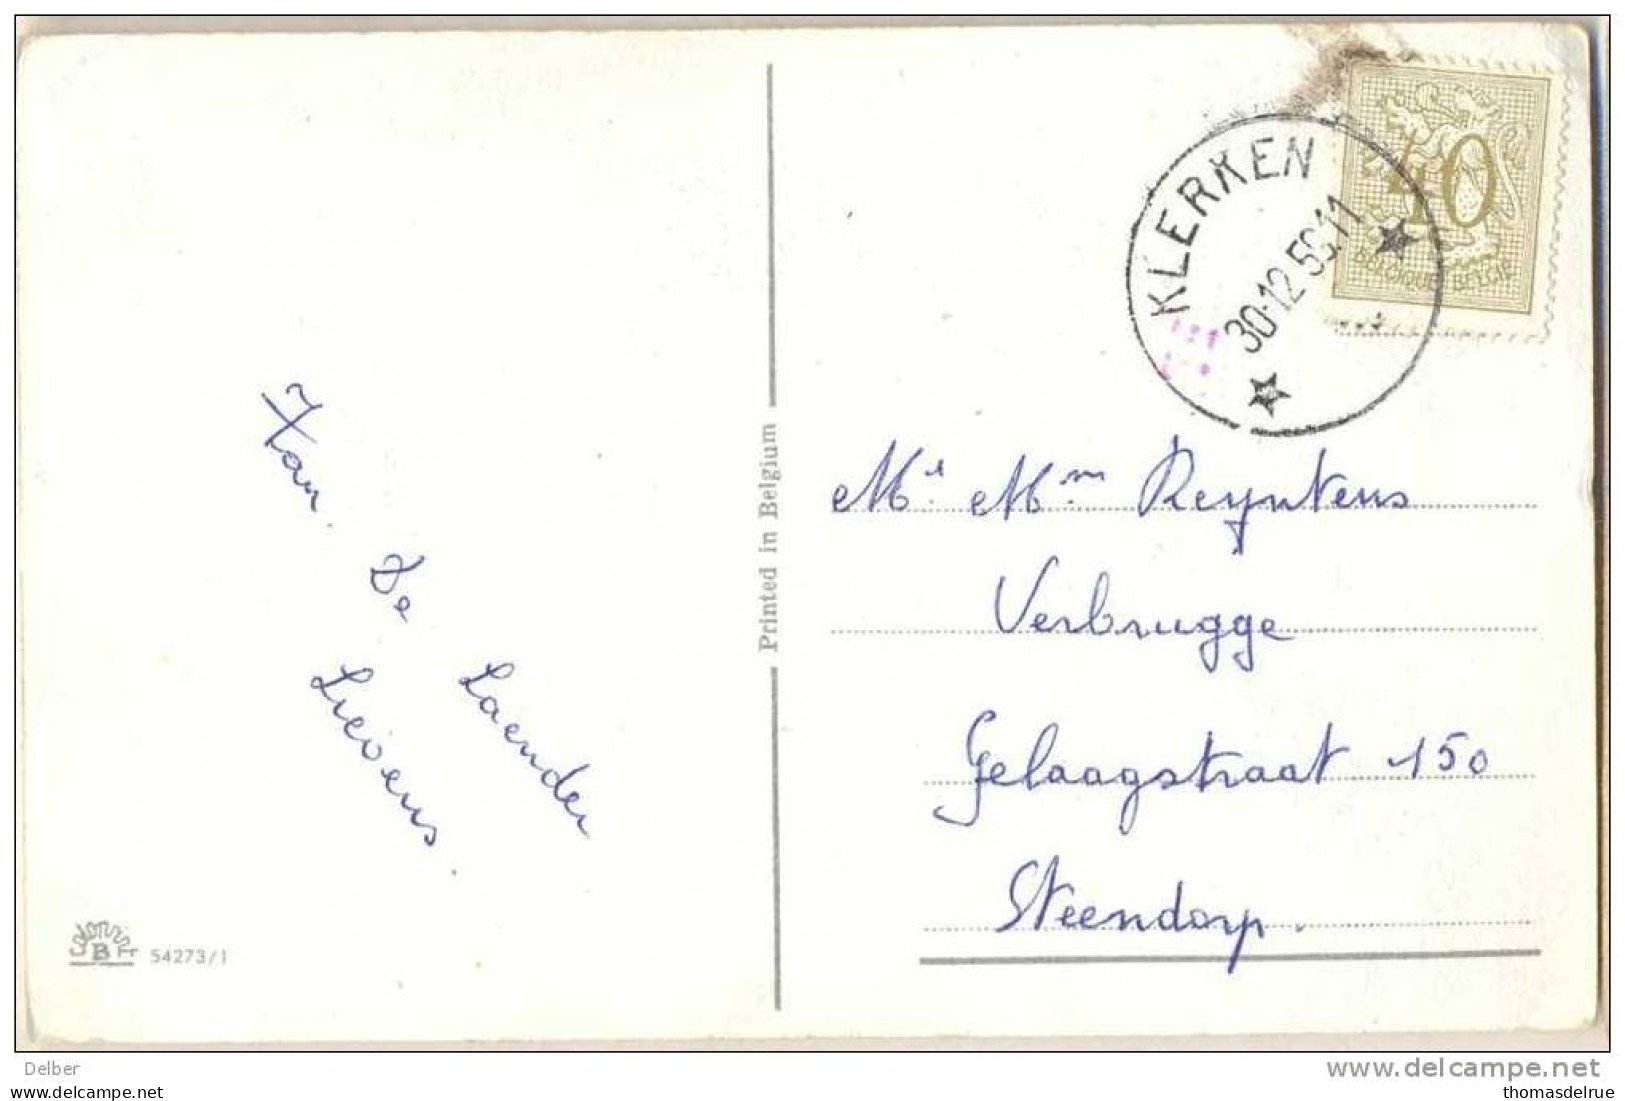 KLERKEN
30·12 58.11
40
BELGIQUE BELGIE
Van De
Laender
Lievens
Printed in Belgium
Mr. Mm Reyntens
Verbrugge
Gelaagstraat 150
Steendorp.
Colorprint
B
54273/1
Delber
www.delcampe.net
thomasdelrue